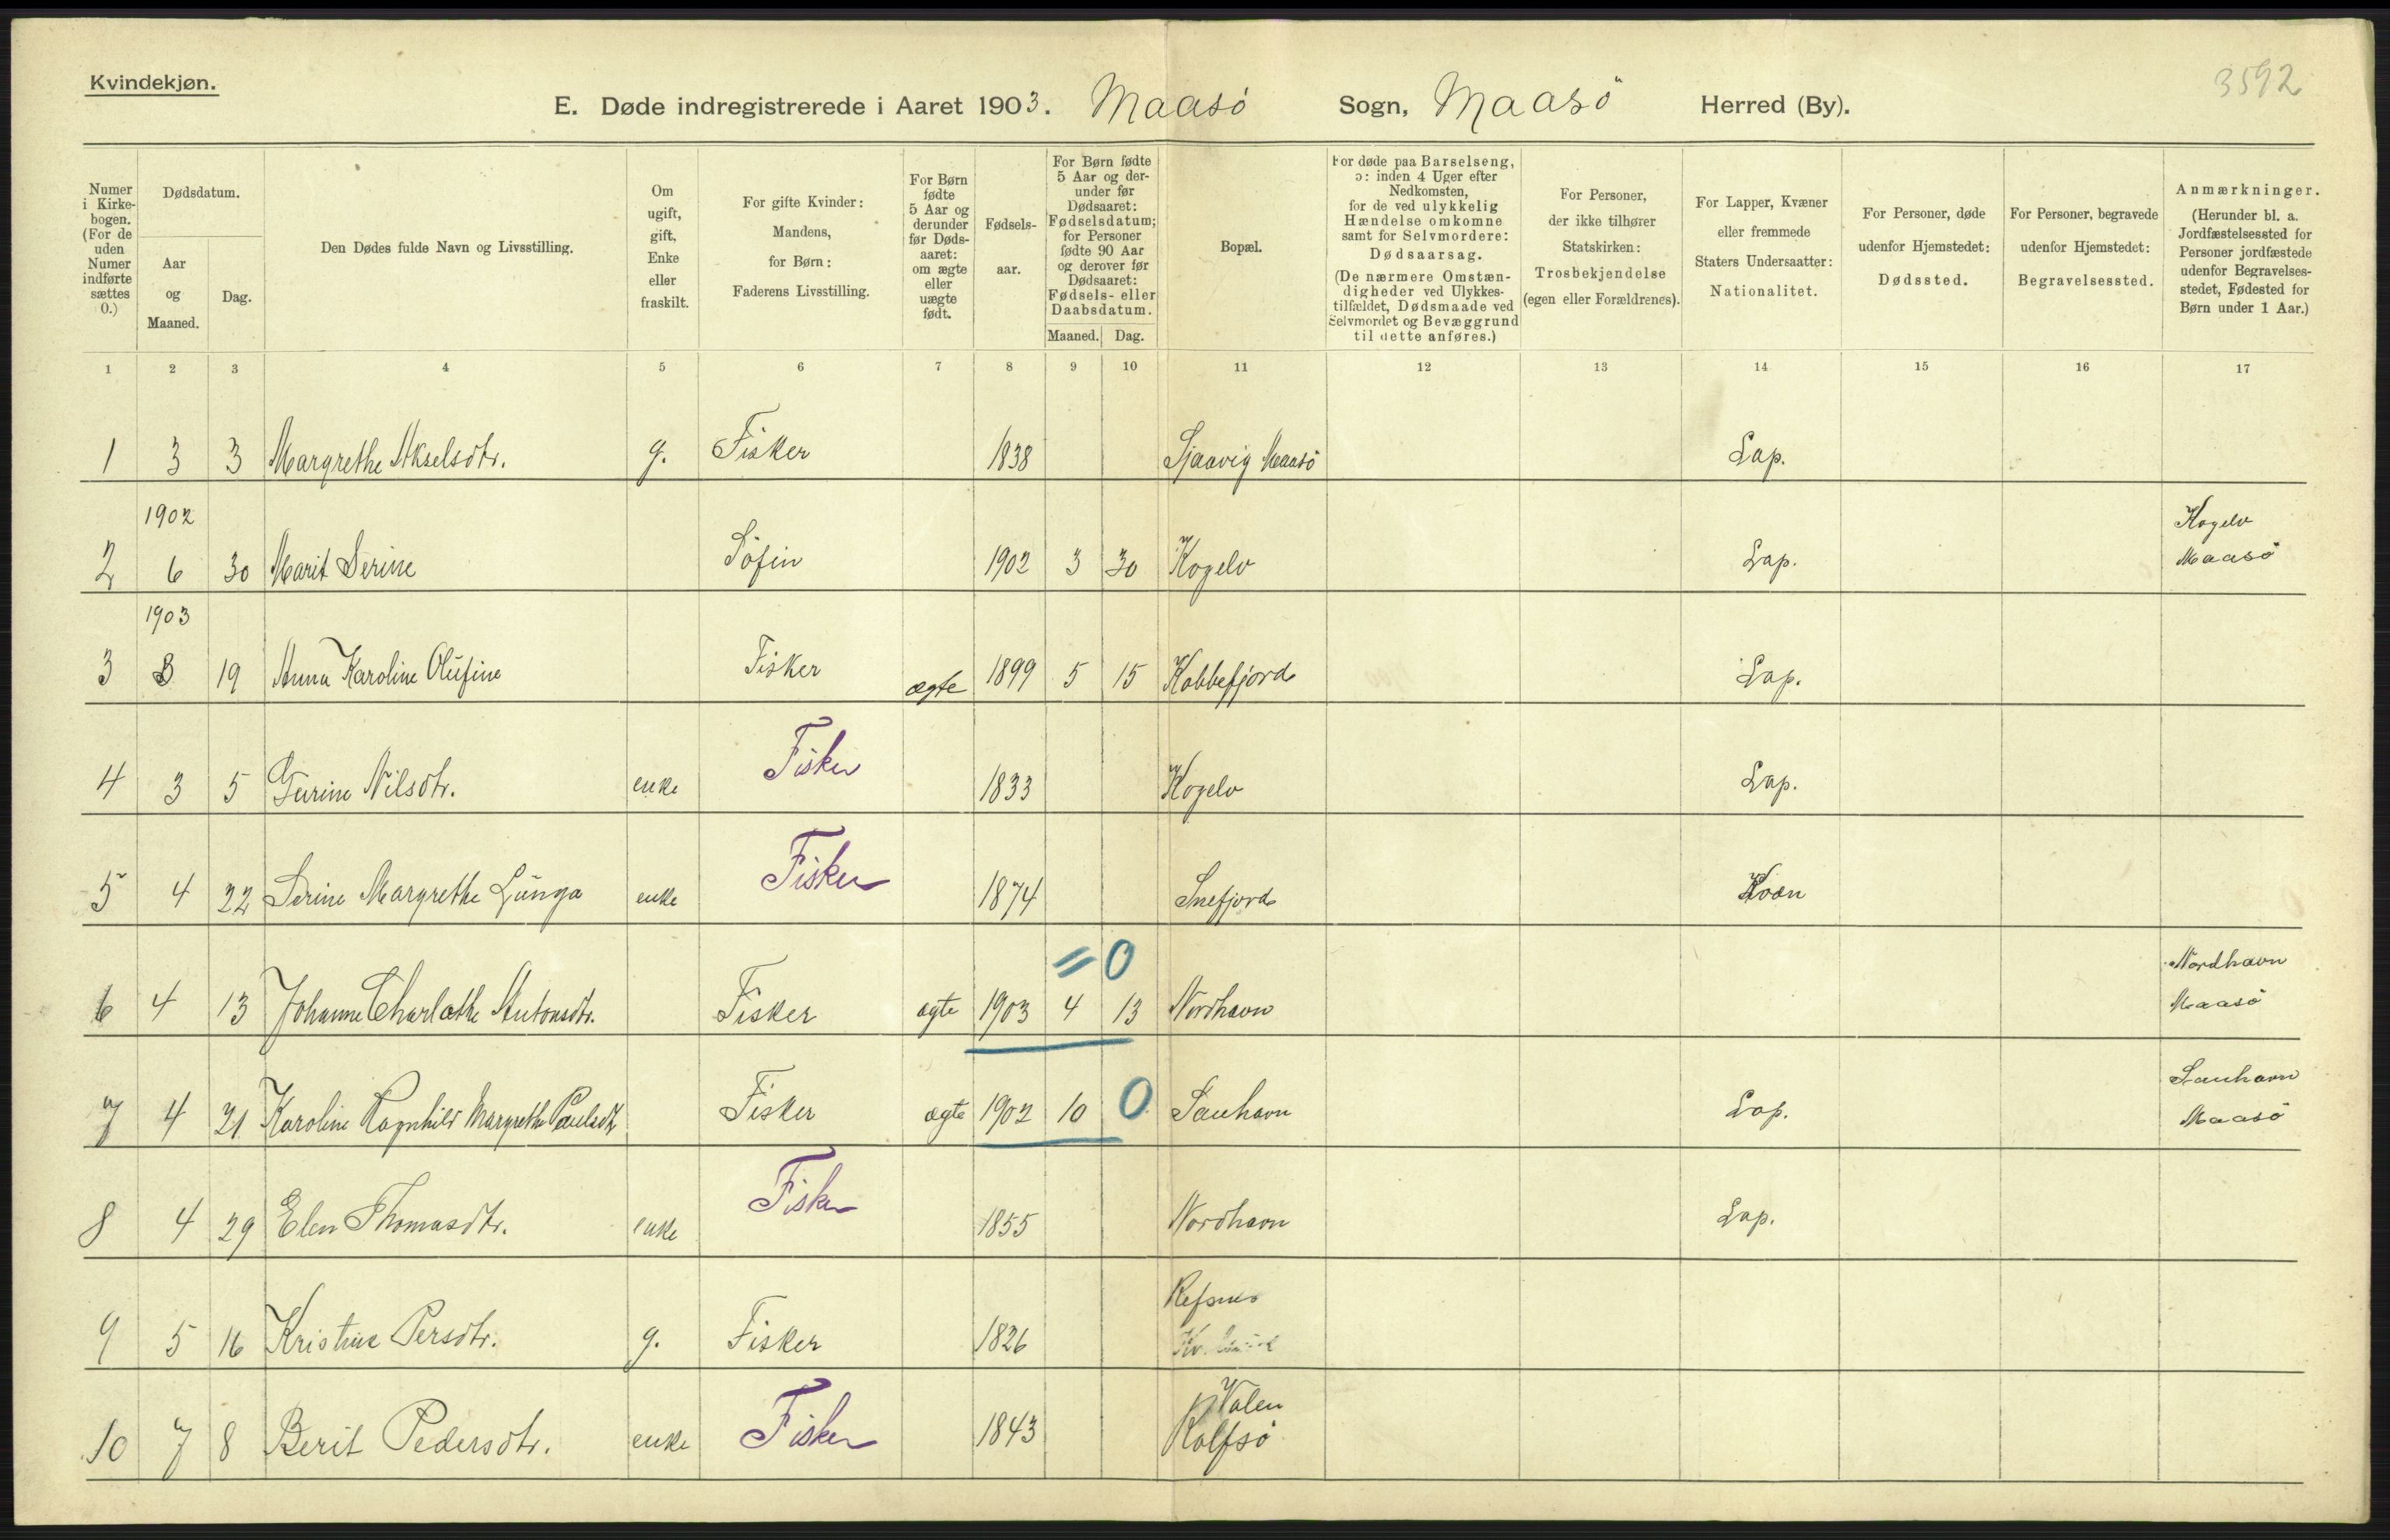 Kvindekjøn.
3592
E. Døde indregistrerede i Aaret 1903. Maasö Sogn, Maasö Herred (By).
Numer i Kirkebogen. (For de uden Numer indførte sættes 0.)
Dødsdatum.
Aar og Maaned.
Dag.
Den Dødes fulde Navn og Livsstilling.
Om ugift, gift, Enke eller fraskilt.
For gifte Kvinder: Mandens, for Børn: Faderens Livsstilling.
For Børn fødte 5 Aar og derunder før Dødsaaret: om ægte eller uægte født.
Fødselsaar.
For Børn fødte 5 Aar og derunder før Dødsaaret: Fødselsdatum; for Personer fødte 90 Aar og derover før Dødsaaret: Fødsels- eller Daabsdatum.
Maaned. Dag.
Bopæl.
For døde paa Barselseng, ɔ: inden 4 Uger efter Nedkomsten, for de ved ulykkelig Hændelse omkomne samt for Selvmordere: Dødsaarsag. (De nærmere Omstændigheder ved Ulykkestilfældet, Dødsmaade ved Selvmordet og Bevæggrund til dette anføres.)
For Personer, der ikke tilhører Statskirken: Trosbekjendelse (egen eller Forældrenes).
For Lapper, Kvæner eller fremmede Staters Undersaatter: Nationalitet.
For Personer, døde udenfor Hjemstedet: Dødssted.
For Personer, begravede udenfor Hjemstedet: Begravelsessted.
Anmærkninger. (Herunder bl. a. Jordfæstelsessted for Personer jordfæstede udenfor Begravelsesstedet, Fødested for Børn under 1 Aar.)
1 2 3 4 5 6 7 8 9 10 11 12 13 14 15 16 17
1 3 3 Margrethe Akselsdtr. g. Fisker 1838 Sjaavig Maasö Lap.
1902
2 6 30 Marit Serine Söfin 1902 3 30 Kogelv Lap. Kogelv Maasö
1903
3 3 19 Anna Karoline Olufine Fisker ægte 1899 5 15 Kobbefjord Lap.
4 3 5 Gurine Nilsdtr. enke Fisker 1833 Kogelv Lap.
5 4 22 Serine Margrethe Ljunga enke Fisker 1874 Snefjord Kvæn
= 0
6 4 13 Johanne Charlothe Antonsdtr. Fisker ægte 1903 4 13 Nordhavn Nordhavn Maasö
7 4 21 Karoline Ragnhild Margrethe Paulsdtr Fisker ægte 1902 10 0 Sauhavn Lap. Sauhavn Maasö
8 4 29 Elen Thomasdtr. enke Fisker 1855 Nordhavn Lap.
9 5 16 Kristine Persdtr. g. Fisker 1826 Refsnes
10 7 8 Berit Pedersdtr. enke Fisker 1843 Valen Rolfsö